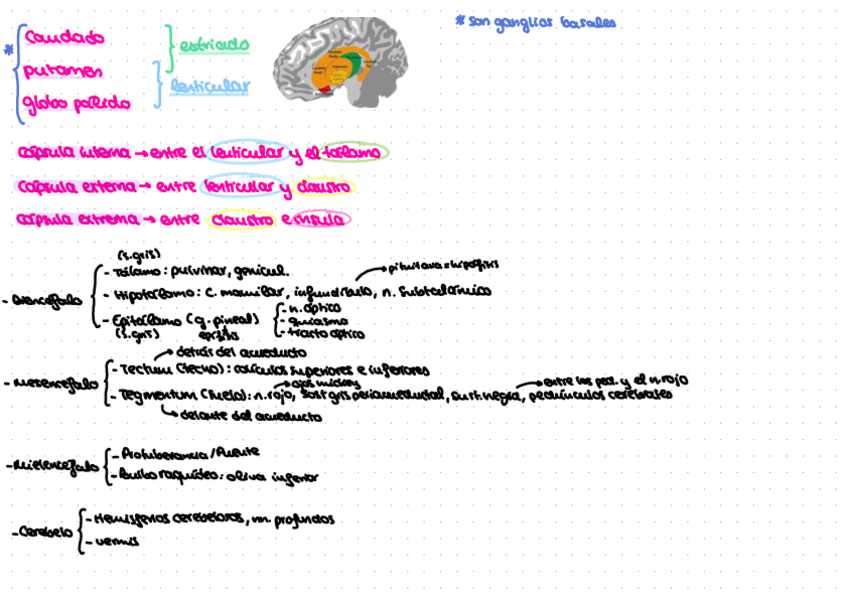 * son ganglios basales
*
caudado
putamen
globo pálido
estriado
lenticular
cápsula interna → entre el lenticular y el tálamo
cápsula externa → entre lenticular y claustro
cápsula extrema → entre claustro e ínsula
(s.gris)
- Diencéfalo
- Tálamo: pulvinar, genicul.
→ pituitaria = hipófisis
- Hipotálamo: C. mamilar, infundíbulo, n. Subtalámico
- Epitálamo (g. pineal)
(s.gris) epífisis
- n. óptico
- quiasma
- tracto óptico
→ detrás del acueducto
- Mesencéfalo
- Tectum (techo): colículos superiores e inferiores
→ ojos mickey
→ entre los ped. y el n. rojo
- Tegmentum (suelo): n. rojo, sust gris periacueductal, sust. negra, pedúnculos cerebrales
→ delante del acueducto
- Mielencéfalo
- Protuberancia / Puente
- Bulbo raquídeo: oliva inferior
- Cerebelo
- Hemisferios cerebelosos, nn. profundos
- vermis